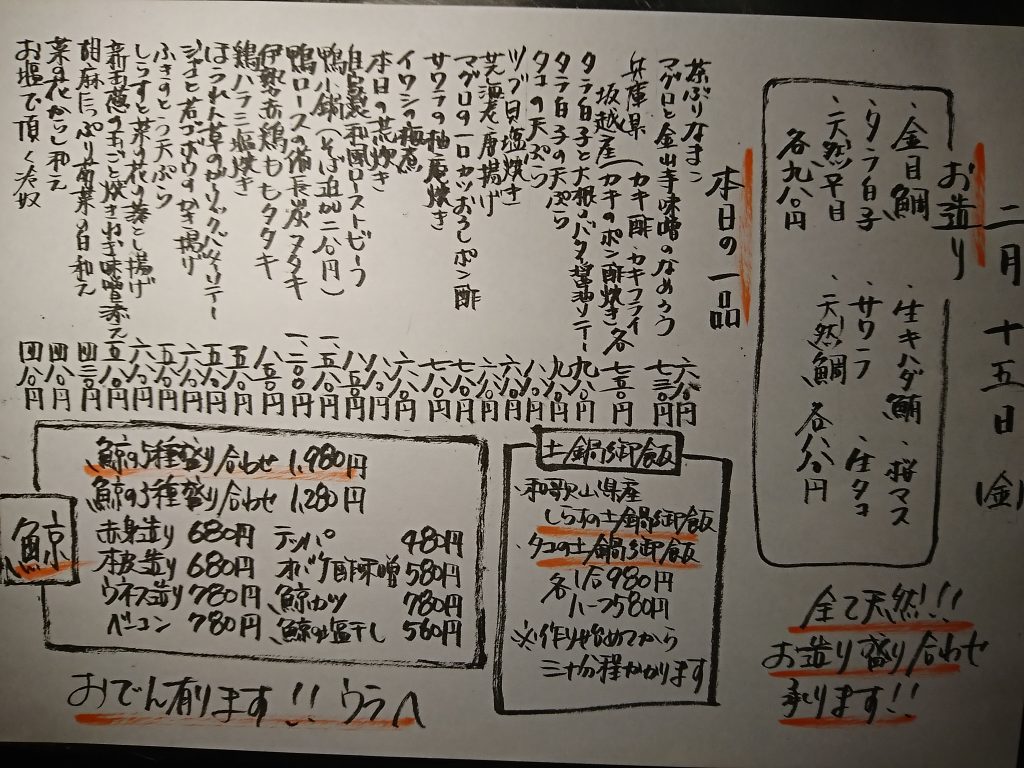 二月十五日(金)
お造り
・金目鯛
・タラ白子
・天然平目
各九八〇円
・生キハダ鮪・桜マス
サワラ・生タコ
・天然鯛 各八八〇円
全て天然!!
お造り盛り合わせ
承ります!!
本日の一品
茶ぶりなまこ 六八〇円
マグロと金山寺味噌のなめろう 七三〇円
兵庫県坂越産(カキ酢・カキフライ
カキのポン酢焼き)各 七五〇円
タラ白子と大根のバタ醤油ソテー 九八〇円
タラ白子の天ぷら 九八〇円
タコの天ぷら 八八〇円
ツブ貝塩焼き 六八〇円
芝海老唐揚げ 六八〇円
マグロの一口カツおろしポン酢 七八〇円
サワラの柚庵焼き 七八〇円
イワシの梅煮 六八〇円
本日の煮炊き 八八〇円
自家製和風ローストビーフ 八五〇円
鴨小鍋(そば追加二八〇円) 一、五八〇円
鴨ロースの備長炭タタキ 一、二〇〇円
伊勢赤鶏ももタタキ 八五〇円
鶏ハラミ塩焼き 五八〇円
ほうれん草のガーリックバターソテー 五八〇円
ジャコと若ゴボウのかき揚げ 五八〇円
ふきのとう天ぷら 五八〇円
しらすと菜の花の落とし揚げ 六八〇円
新玉葱の丸ごと焼きねぎ味噌添え 五八〇円
胡麻たっぷり青菜の白和え 四三〇円
菜の花からし和え 四八〇円
お塩で頂く冷奴 四八〇円
土鍋御飯
・和歌山県産
しらすの土鍋御飯
・タコの土鍋御飯
各1合980円
ハーフ580円
※作り始めてから
三十分程かかります
鯨
鯨の5種盛り合わせ 1,980円
鯨の3種盛り合わせ 1,280円
赤身造り 680円 テッパ 480円
本皮造り 680円 オバケ酢味噌 580円
ウネス造り 780円 鯨カツ 780円
ベーコン 780円 鯨の塩干し 560円
おでん有ります!!ウラへ